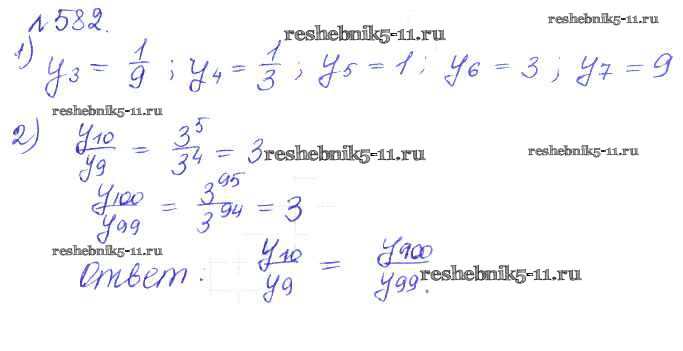 №582. reshebnik5-11.ru reshebnik5-11.ru
1) y₃ = 1/9 ; y₄ = 1/3 ; y₅ = 1 ; y₆ = 3 ; y₇ = 9
reshebnik5-11.ru
2) y₁₀/y₉ = 3⁵/3⁴ = 3 reshebnik5-11.ru reshebnik5-11.ru
y₁₀₀/y₉₉ = 3⁹⁵/3⁹⁴ = 3
reshebnik5-11.ru
Ответ: y₁₀/y₉ = y₁₀₀/y₉₉. reshebnik5-11.ru